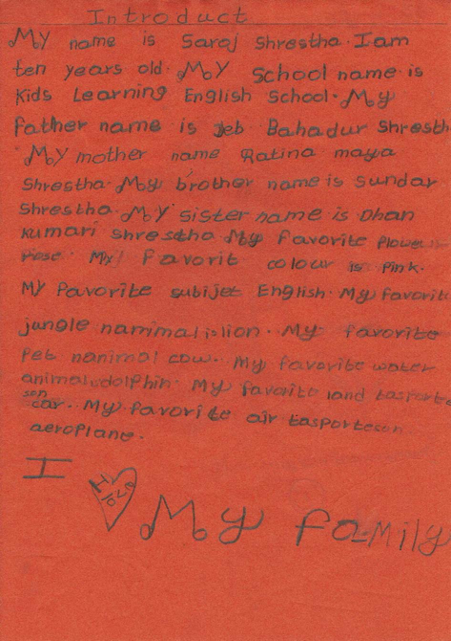 Introduct
My name is Saroj Shrestha. I am
ten years old. My School name is
Kids Learning English School. My
father name is Deb Bahadur Shresth
My mother name Ratina maya
Shrestha. My brother name is Sundar
Shrestha. My sister name is Dhan
Kumari Shrestha My favorite flower is
My favorit colour is pink.
My favorite subijet English. My favorit
jungle nanimal is lion. My favorite
pet nanimal cow. My favorite water
animal dolphin. My favorite land tasporte
son
car. My favorite air tasporteson
aeroplane.
I
I love
My family